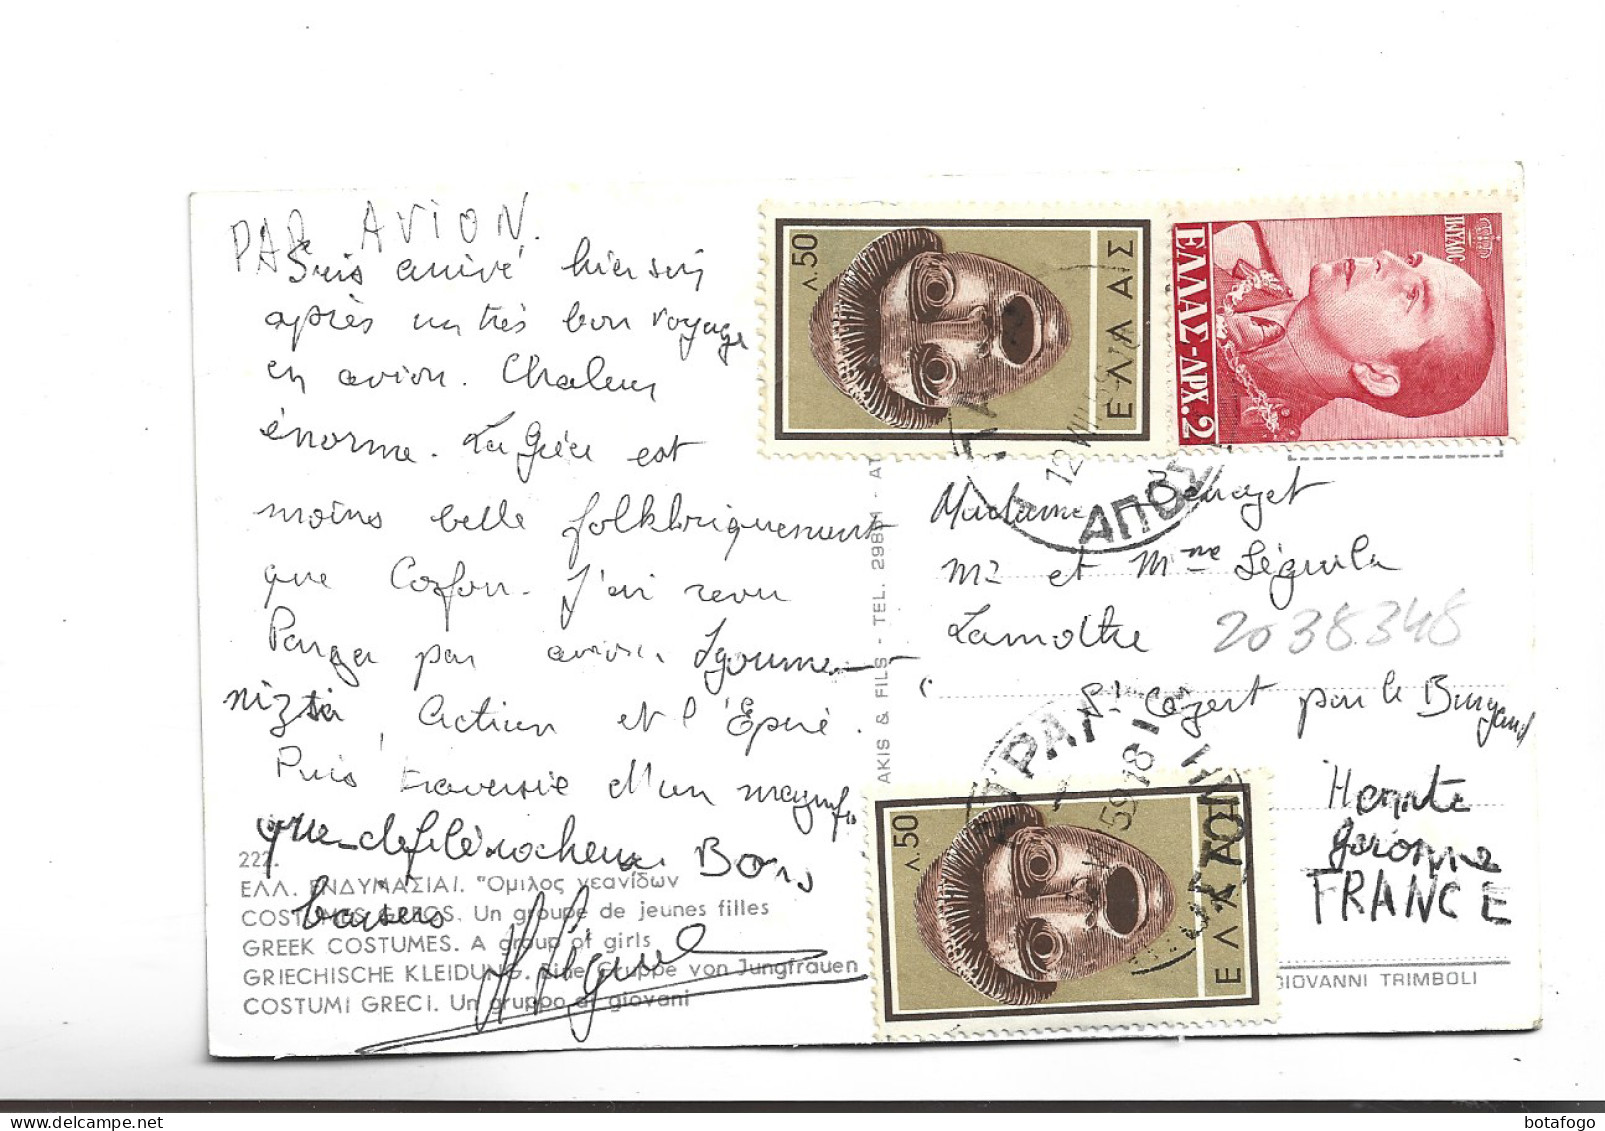 PAR AVION.
Suis arrivé hier soir
après un très bon voyage
en avion. Chaleur
énorme. La Grèce est
moins belle folkloriquement
que Corfou. J'ai revu
Parga par avion, Igoume-
nizta, Actium et l'Épire.
Puis traversée d'un magnifi
que défilé rocheux. Bons
baisers
222.
ΕΛΛ. ΕΝΔΥΜΑΣΙΑΙ. Ὅμιλος νεανίδων
COSTUMES GRECS. Un groupe de jeunes filles
GREEK COSTUMES. A group of girls
GRIECHISCHE KLEIDUNG. Eine Gruppe von Jungfrauen
COSTUMI GRECI. Un gruppo di giovani
AKIS & FILS - TEL. 29891 - AT
Λ.50
ΕΛΛΑΣ
ΠΑΥΛΟΣ
ΕΛΛΑΣ-ΔΡΧ.2
12 VII 59
ΑΠΟΣ
Madame Benazet
Mr et Mme Séguéla
Lamothe
2038.348
St Cézert par le Burgaud
Haute
garonne
FRANCE
ΠΑΤΡΑΙ
59 18
Λ.50
ΕΛΛΑΣ
GIOVANNI TRIMBOLI
botafogo